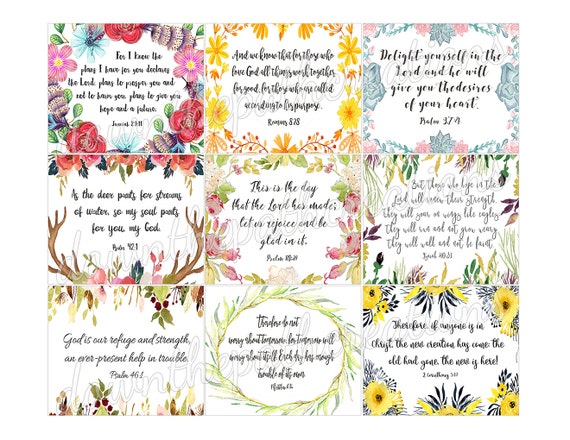 For I know the
plans I have for you declares
the Lord, plans to prosper you and
not to harm you, plans to give you
hope and a future.
Jeremiah 29:11
And we know that for those who
love God all things work together
for good, for those who are called
according to his purpose.
Romans 8:28
Delight yourself in the
Lord and he will
give you thedesires
of your heart.
Psalm 37:4
As the deer pants for streams
of water, so my soul pants
for you, my God.
Psalm 42:1
This is the day
that the Lord has made;
let us rejoice and be
glad in it.
Psalm 118:24
But those who hope in the
Lord will renew their strength,
they will soar on wings like eagles,
they will run and not grow weary,
they will walk and not be faint.
Isaiah 40:31
God is our refuge and strength,
an ever-present help in trouble.
Psalm 46:1
Therefore do not
worry about tomorrow, for tomorrow will
worry about itself. Each day has enough
trouble of its own.
Matthew
Therefore, if anyone is in
Christ, the new creation has come: the
old had gone, the new is here!
2 Corinthians 5:17